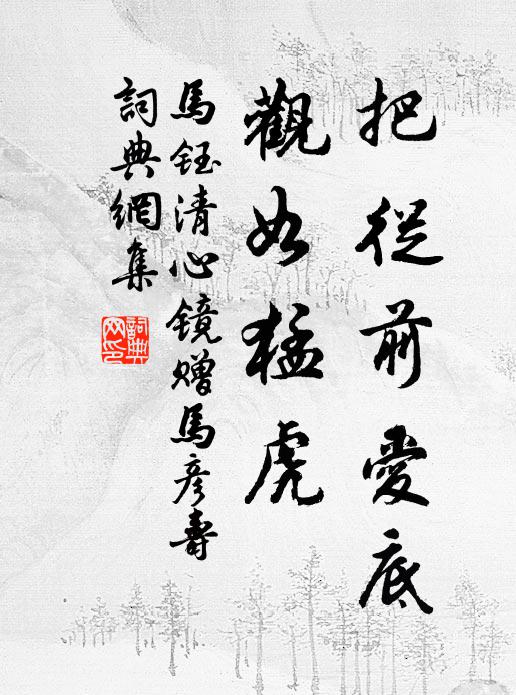 把從前愛底
觀如猛虎
馬鈺清心镜贈馬彦壽
詞典網集
詞典网印